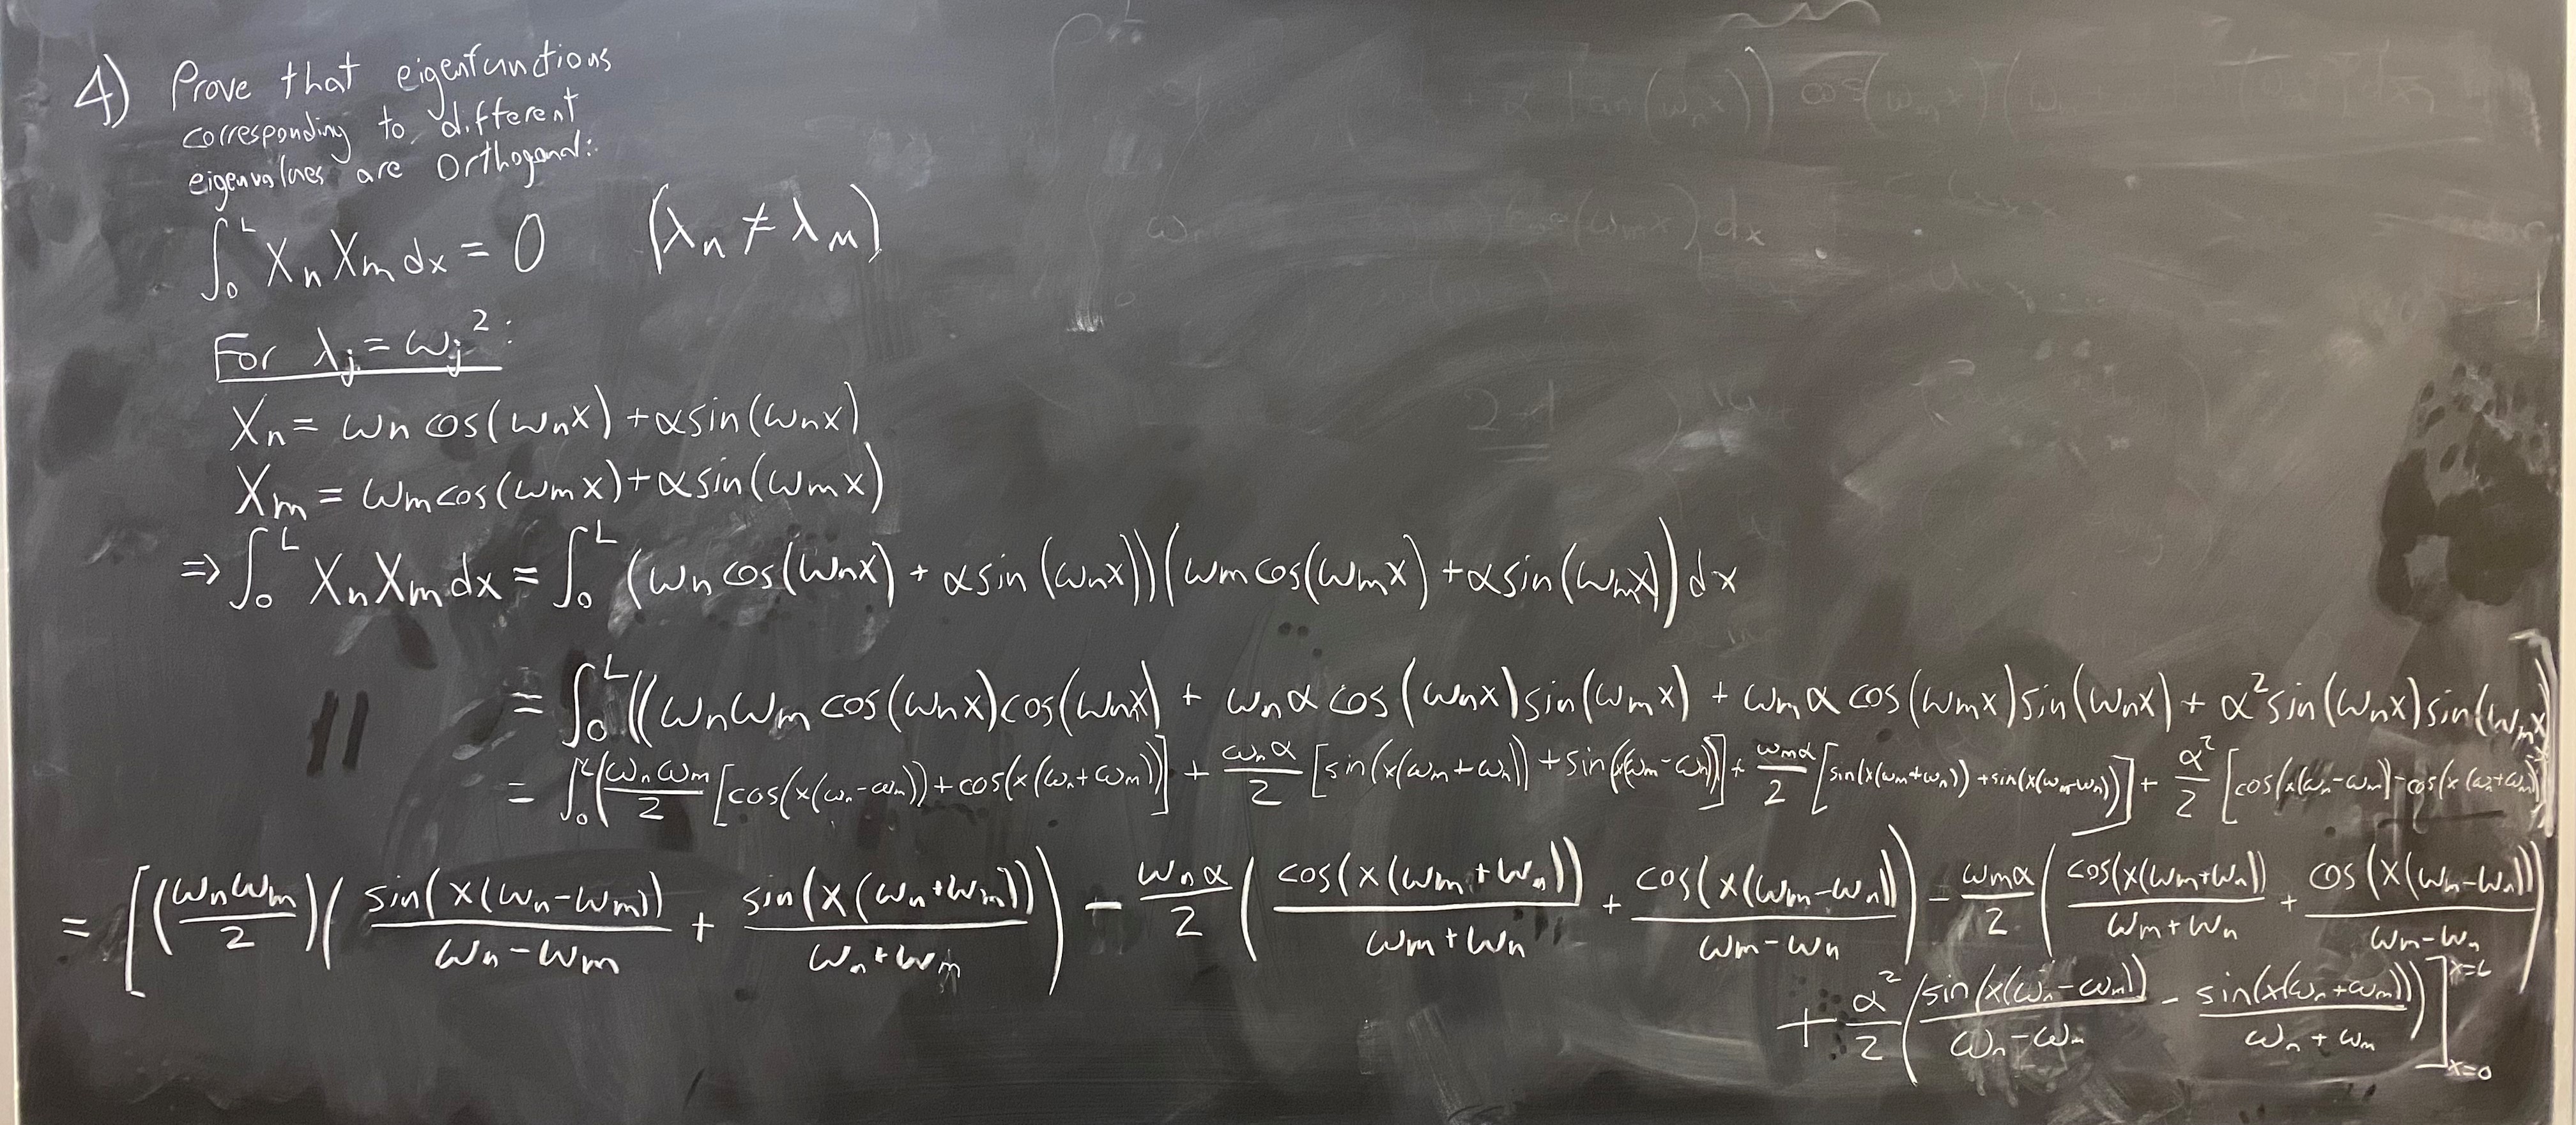 4) Prove that eigenfunctions
corresponding to different
eigenvalues are Orthogonal:
∫₀ᴸ XₙXₘdx = 0 (λₙ ≠ λₘ)
For λⱼ = ωⱼ²:
Xₙ = ωₙ cos(ωₙx) + αsin(ωₙx)
Xₘ = ωₘcos(ωₘx) + αsin(ωₘx)
⇒ ∫₀ᴸ XₙXₘdx = ∫₀ᴸ (ωₙ cos(ωₙx) + αsin(ωₙx))(ωₘcos(ωₘx) + αsin(ωₘx))dx
= ∫₀ᴸ ((ωₙωₘ cos(ωₙx)cos(ωₘx) + ωₙα cos(ωₙx)sin(ωₘx) + ωₘα cos(ωₘx)sin(ωₙx) + α²sin(ωₙx)sin(ωₘx)
= ∫₀ᴸ (ωₙωₘ/2 [cos(x(ωₙ-ωₘ)) + cos(x(ωₙ+ωₘ))] + ωₙα/2 [sin(x(ωₘ+ωₙ)) + sin(x(ωₘ-ωₙ))] + ωₘα/2 [sin(x(ωₘ+ωₙ)) + sin(x(ωₘ-ωₙ))] + α²/2 [cos(x(ωₙ-ωₘ)) - cos(x(ωₙ+ωₘ))]
= [(ωₙωₘ/2)(sin(x(ωₙ-ωₘ))/(ωₙ-ωₘ) + sin(x(ωₙ+ωₘ))/(ωₙ+ωₘ)) - ωₙα/2 (cos(x(ωₘ+ωₙ))/(ωₘ+ωₙ) + cos(x(ωₘ-ωₙ))/(ωₘ-ωₙ)) - ωₘα/2 (cos(x(ωₘ+ωₙ))/(ωₘ+ωₙ) + cos(x(ωₘ-ωₙ))/(ωₘ-ωₙ))
+ α²/2 (sin(x(ωₙ-ωₘ))/(ωₙ-ωₘ) - sin(x(ωₙ+ωₘ))/(ωₙ+ωₘ))] x=L x=0